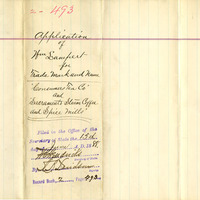 No - 493
Application
of
Wm Lampert
for
Trade Mark and Name
"Consumers Tea Co"
and
Sacramento Steam Coffee
and Spice Mills"
Filed in the Office of the
Secretary of State the 13th
A.D. 1888
Secretary of State
By
Deputy
Record Book Page 493